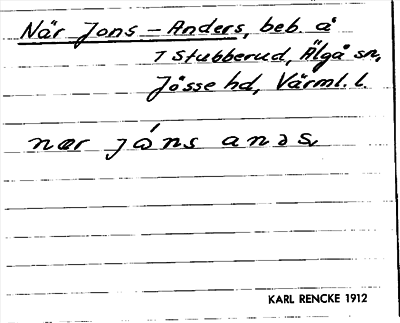 När Jons-Anders, beb. å
1 Stubberud, Älgå sn,
Jösse hd, Värml. l.
nær jó̀ns anəs
KARL RENCKE 1912